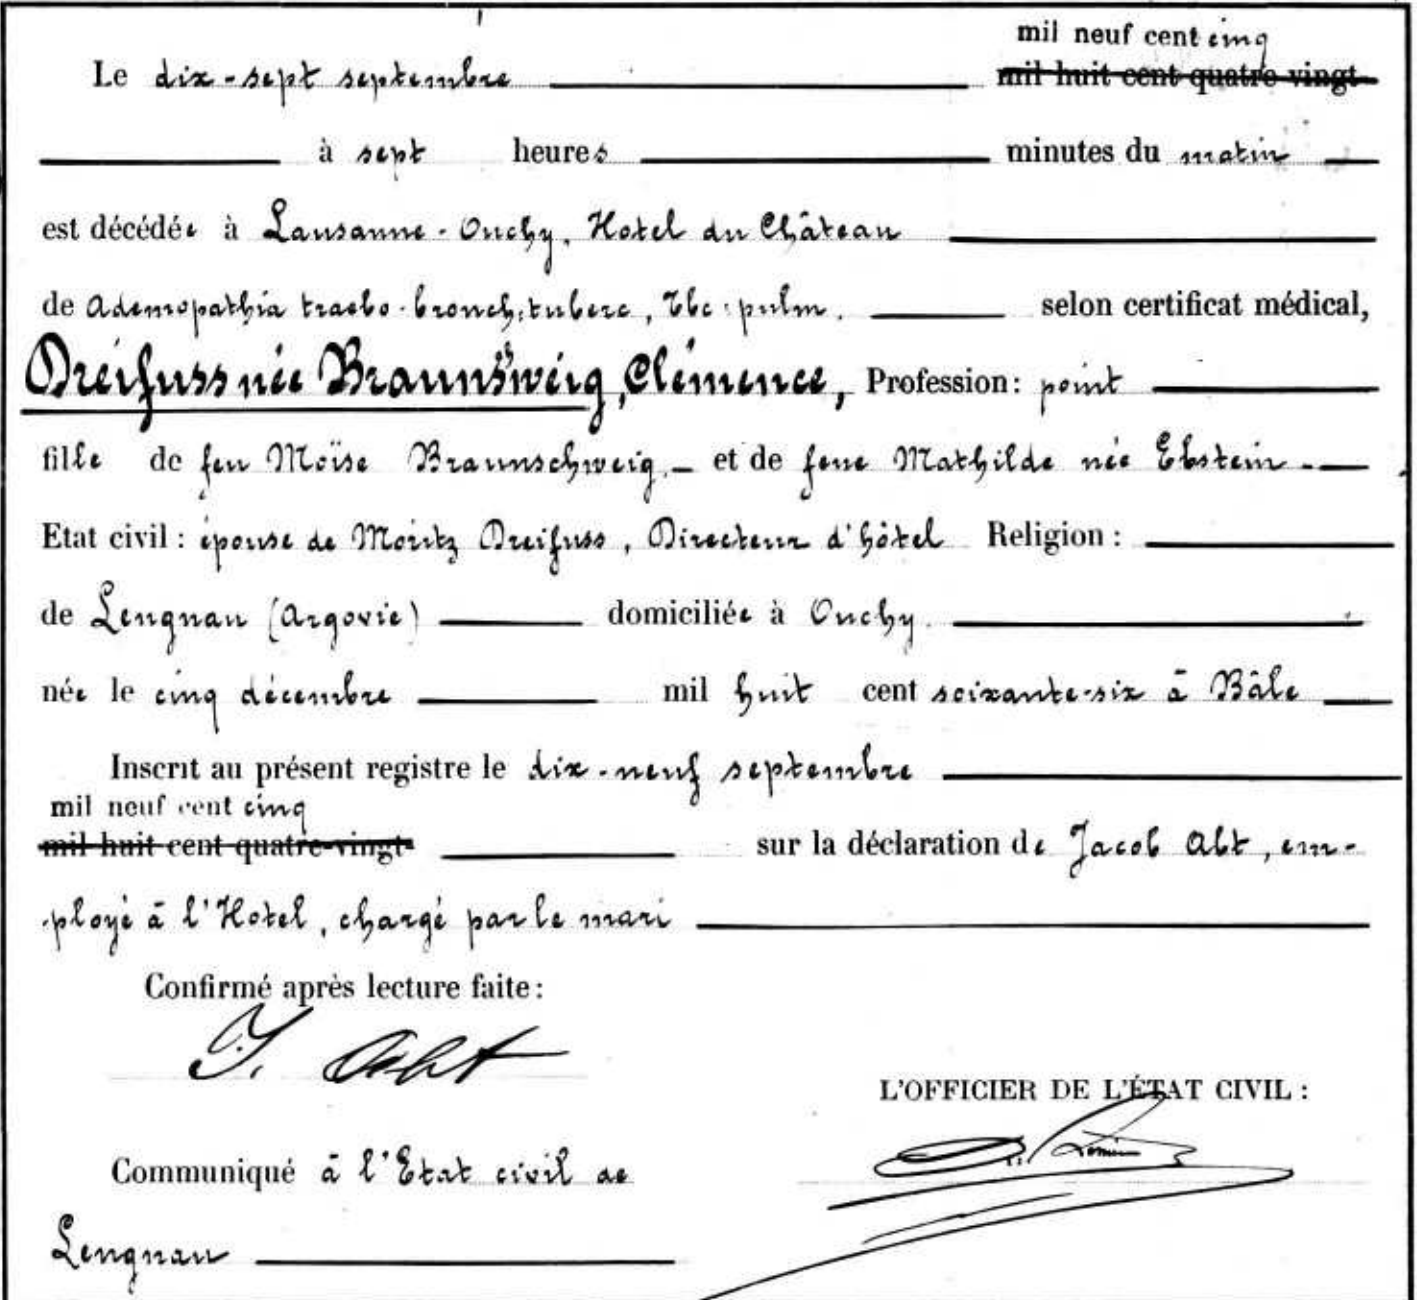 mil neuf cent cinq
Le dix-sept septembre mil huit cent quatre-vingt
à sept heures minutes du matin
est décédée à Lausanne-Ouchy, Hotel du Château
de Adenopathia traebo-bronch. tuberc, Tbc. pulm. selon certificat médical,
Dreifuss née Braunsweig, Clémence, Profession: point
fille de feu Moïse Braunschweig et de feue Mathilde née Ebstein
Etat civil: épouse de Moritz Dreifuss, Directeur d'hôtel Religion:
de Lengnau (Argovie) domiciliée à Ouchy.
née le cinq décembre mil huit cent soixante-six à Bâle
Inscrit au présent registre le dix-neuf septembre
mil neuf cent cinq
mil huit cent quatre-vingt- sur la déclaration de Jacob Abt, em-
ployé à l'Hotel, chargé par le mari
Confirmé après lecture faite:
J. Abt
L'OFFICIER DE L'ÉTAT CIVIL:
Communiqué à l'Etat civil de
Lengnau